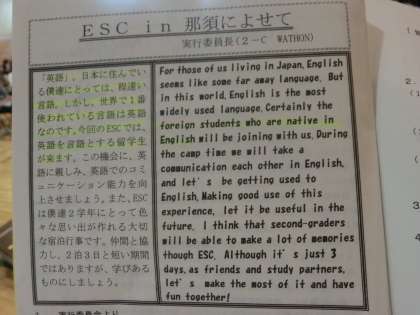 ESC in 那須によせて
実行委員長(2-C WATHON)
「英語」。日本に住んでい
る僕達にとっては、程遠い
言語。しかし、世界で1番
使われている言語は英語
なのです。今回のESCでは、
英語を言語とする留学生
が来ます。この機会に、英
語に親しみ、英語でのコミ
ュニケーション能力を向
上させましょう。また、ESC
は僕達2学年にとって色々
な思い出が作れる大切
な宿泊行事です。仲間と協
力し、2泊3日と短い期間
ではありますが、学びある
ものにしましょう。
For those of us living in Japan, English
seems like some far away language. But
in this world, English is the most
widely used language. Certainly the
foreign students who are native in
English will be joining with us. During
the camp time we will take a
communication each other in English,
and let's be getting used to
English. Making good use of this
experience, let it be useful in the
future. I think that second-graders
will be able to make a lot of memories
though ESC. Although it's just 3
days, as friends and study partners,
let's make the most of it and have
fun together!